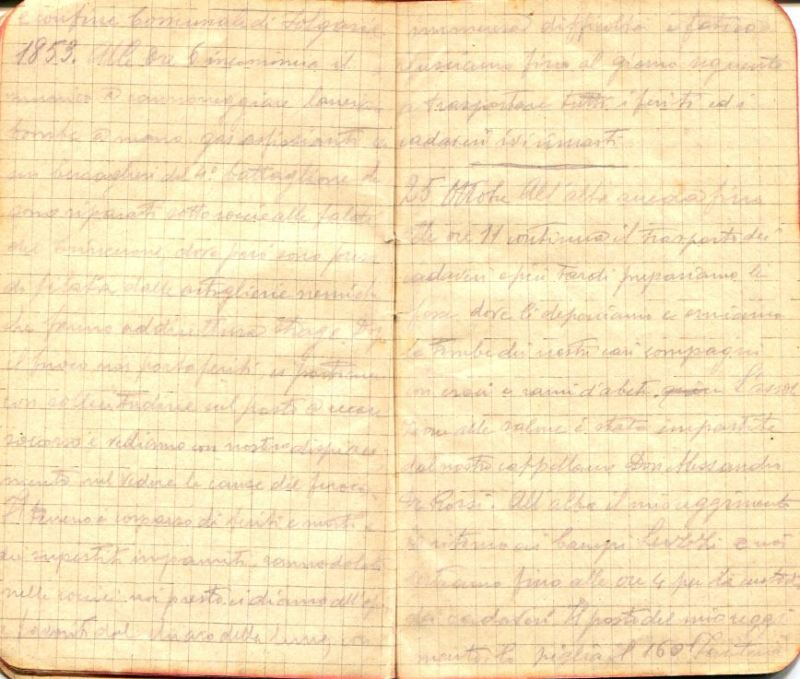 e confine Comunale di Folgaria
1853. Alle ore 6 incomincia il
nemico a cannoneggiare
bombe a mano gas asfissianti e
un bersaglieri del 4° battaglione si
sono riparati sotto roccie alle falde
del dove però sono presi
di filata dalle artiglierie nemiche
che fanno addirittura strage.
il fuoco noi portaferiti si partiamo
con sollecitudine sul posto a recare
soccorso e vediamo con nostro dispiace
mento nel vedere la
Il terreno è cosparso di feriti e morti e
i superstiti impauriti
nelle roccie noi presto ci diamo all'
e favoriti dal chiaro della luna, con
immensa difficoltà e fatica
riusciamo fino al giorno seguente
a trasportare tutti i feriti ed i
cadaveri ivi rimasti
25 Ottobre All'alba ancora fino
alle ore 11 continua il trasporto dei
cadaveri e più tardi prepariamo le
fosse dove li deponiamo e orniamo
le tombe dei nostri cari compagni
con croci e rami d'abete. l'assol
zione alle salme è stata impartita
dal nostro cappellano Don Alessandro
De Rossi. All'alba il mio reggimento
ritorna ai Campi e noi
restiamo fino alle ore 4 per la custodia
dei cadaveri. Il posto del mio reggi
mento lo piglia il 160